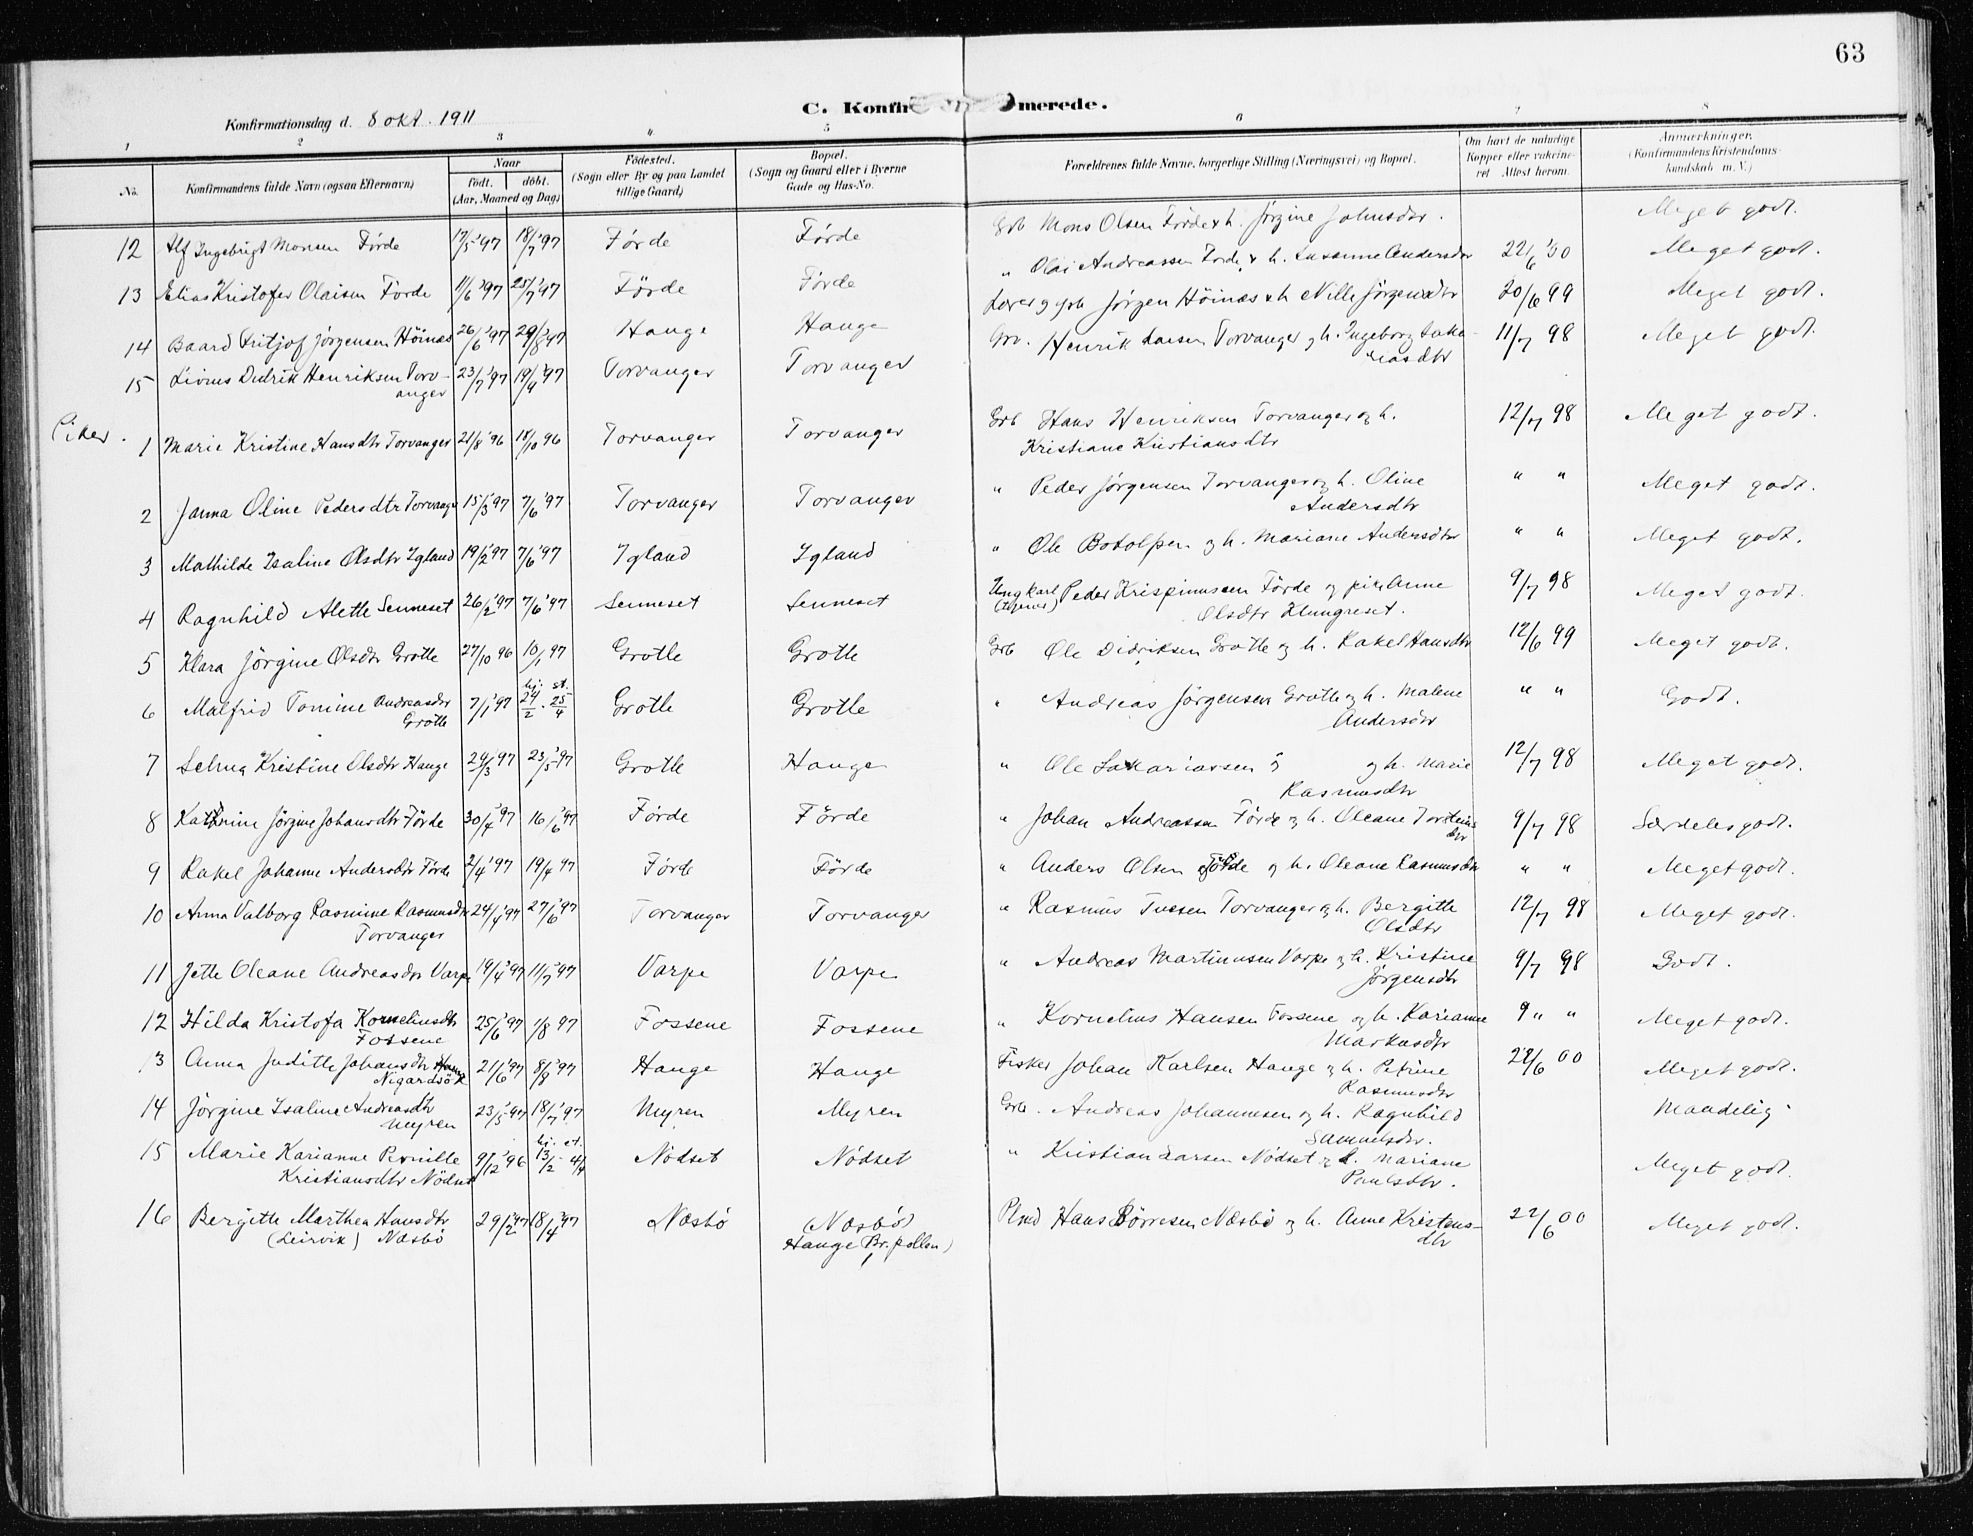 63
C. Konfir merede.
Konfirmationsdag d. 8 okt. 1911
1 2 3 4 5 6 7 8
No. Konfirmandens fulde Navn (ogsaa Efternavn) Naar født. døbt. (Aar, Maaned og Dag) Fødested. (Sogn eller By og paa Landet tillige Gaard) Bopæl. (Sogn og Gaard eller i Byerne Gade og Hus-No. Forældrenes fulde Navne, borgerlige Stilling (Næringsvei) og Bopæl. Om havt de naturlige Kopper eller vaksineret Attest herom. Anmærkninger. (Konfirmandens Kristendomskundskab m. V.)
12 Alf Ingebrigt Monsen Førde 17/5 '97 18/7 '97 Førde Førde Grb Mons Olsen Førde & h. Jørgine Johnsdtr. Meget godt.
13 Elias Kristofer Olaisen Förde 11/6 '97 25/7 '97 Förde Förde " Olai Andreassen Förde & h. Susanne Andersdtr 22/6 '00 Meget godt.
14 Baard Fritjof Jørgensen Höinæs 26/6 '97 29/8 97 Hauge Hauge Lærer og grb Jörgen Höinæs & h. Nille Jörgensdtr 20/6 99 Meget godt.
15 Livius Didrik Henriksen Torv-
anger 23/7 '97 19/9 '97 Torvanger Torvanger Grb. Henrik Larsen Torvanger og h. Ingeborg Saka-
riasdtr 11/7 98 Meget godt.
Piker.
1 Marie Kristine Hansdtr Torvanger 21/8 '96 18/10 96 Torvanger Torvanger Grb Hans Henriksen Torvanger og h.
Kristiane Kristiansdtr 12/7 98 Meget godt.
2 Janna Oline Pedersdtr Torvanger 15/3 '97 7/6 '97 Torvanger Torvanger " Peder Jørgensen Torvanger og h. Oline
Andersdtr " " Meget godt.
3 Mathilde Isaline Olsdtr Igland 19/2 '97 7/6 '97 Igland Igland " Ole Botolfsen og h. Mariane Andersdtr " " Meget godt.
4 Ragnhild Alette Senneset 26/2 '97 7/6 '97 Senneset Senneset Ungkarl Peder Krispinussen Förde og pike Anne
Olsdtr Klungreset. 9/7 98 Meget godt.
5 Klara Jörgine Olsdtr Grotle 27/10 96 10/1 97 Grotle Grotle Grb Ole Didriksen Grotle og h. Rakel Hansdtr 12/6 99 Meget godt.
6 Malfrid Tomine Andreasdtr
Grotle 7/1 '97 hj. 24/2 . st. 25/4 Grotle Grotle " Andreas Jørgensen Grotle og h. Malene
Andersdtr " " Godt.
7 Selma Kristine Olsdtr Hauge 24/3 '97 23/5 '97 Grotle Hauge " Ole Sakariassen og h. Marie
Rasmusdtr 12/7 98 Meget godt.
8 Kathrine Jörgine Johansdtr Förde 30/4 '97 16/6 '97 Førde Förde " Johan Andreassen Förde og h. Oleane Torsteins
dtr 9/7 98 Særdeles godt.
9 Rakel Johanne Andersdtr Förde 2/4 '97 19/4 97 Förde Förde " Anders Olsen Förde og h. Oleane Rasmusdtr " " Meget godt.
10 Anna Valborg Rasmine Rasmusdtr
Torvanger 24/4 '97 27/6 '97 Torvanger Torvanger " Rasmus Torvanger og h. Bergitte
Olsdtr 12/7 98 Meget godt.
11 Jette Oleane Andreasdtr Varpe 19/4 '97 11/7 '97 Varpe Varpe " Andreas Martinusen Varpe og h. Kristine
Jørgensdtr 9/7 98 Godt.
12 Hilda Kristofa Korneliusdtr
Fossene 25/6 '97 1/8 97 Fossene Fossene " Kornelius Hansen Fossene og h. Karianne
Markusdtr 9 " " Meget godt.
13 Anna Judith Johansdtr
Nigardsök 21/6 '97 8/8 '97 Hauge Hauge Fisker Johan Karlsen Hauge og h. Petrine
Rasmusdtr 22/6 00 Meget godt.
14 Jörgine Isaline Andreasdtr
Myren 23/5 '97 18/7 '97 Myren Myren Grb. Andreas Johannesen og h. Ragnhild
Samuelsdtr. Maadelig
15 Marie Karianne Pernille
Kristiansdtr Nödset 9/12 '96 hj. 13/2 st. 4/4 Nødset Nødset " Kristian Larsen Nødset og h. Mariane
Paulsdtr. Meget godt.
16 Bergitte Marthea Hansdtr
(Leirvik) Næsbö 29/2 '97 18/4 '97 Næsbö (Næsbö)
Hauge Br.pollen) Plmd Hans Börresen Næsbö og h. Anne Kristens-
dtr 22/6 00 Meget godt.